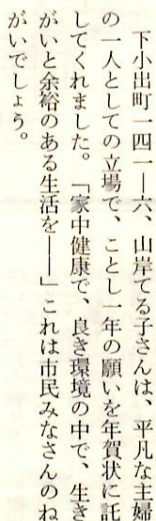 下小出町一四一―六、山岸てる子さんは、平凡な主婦
の一人としての立場で、ことし一年の願いを年賀状に託
してくれました。「家中健康で、良き環境の中で、生き
がいと余裕のある生活を――」これは市民みなさんのね
がいでしょう。